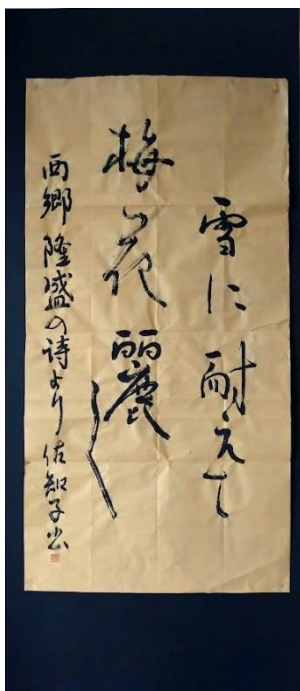 雪に耐えて
梅花麗し
西郷隆盛の詩より 佐知子書